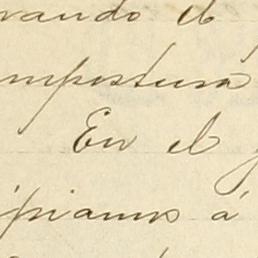 rando el
mpostura
En el
ipiamos á